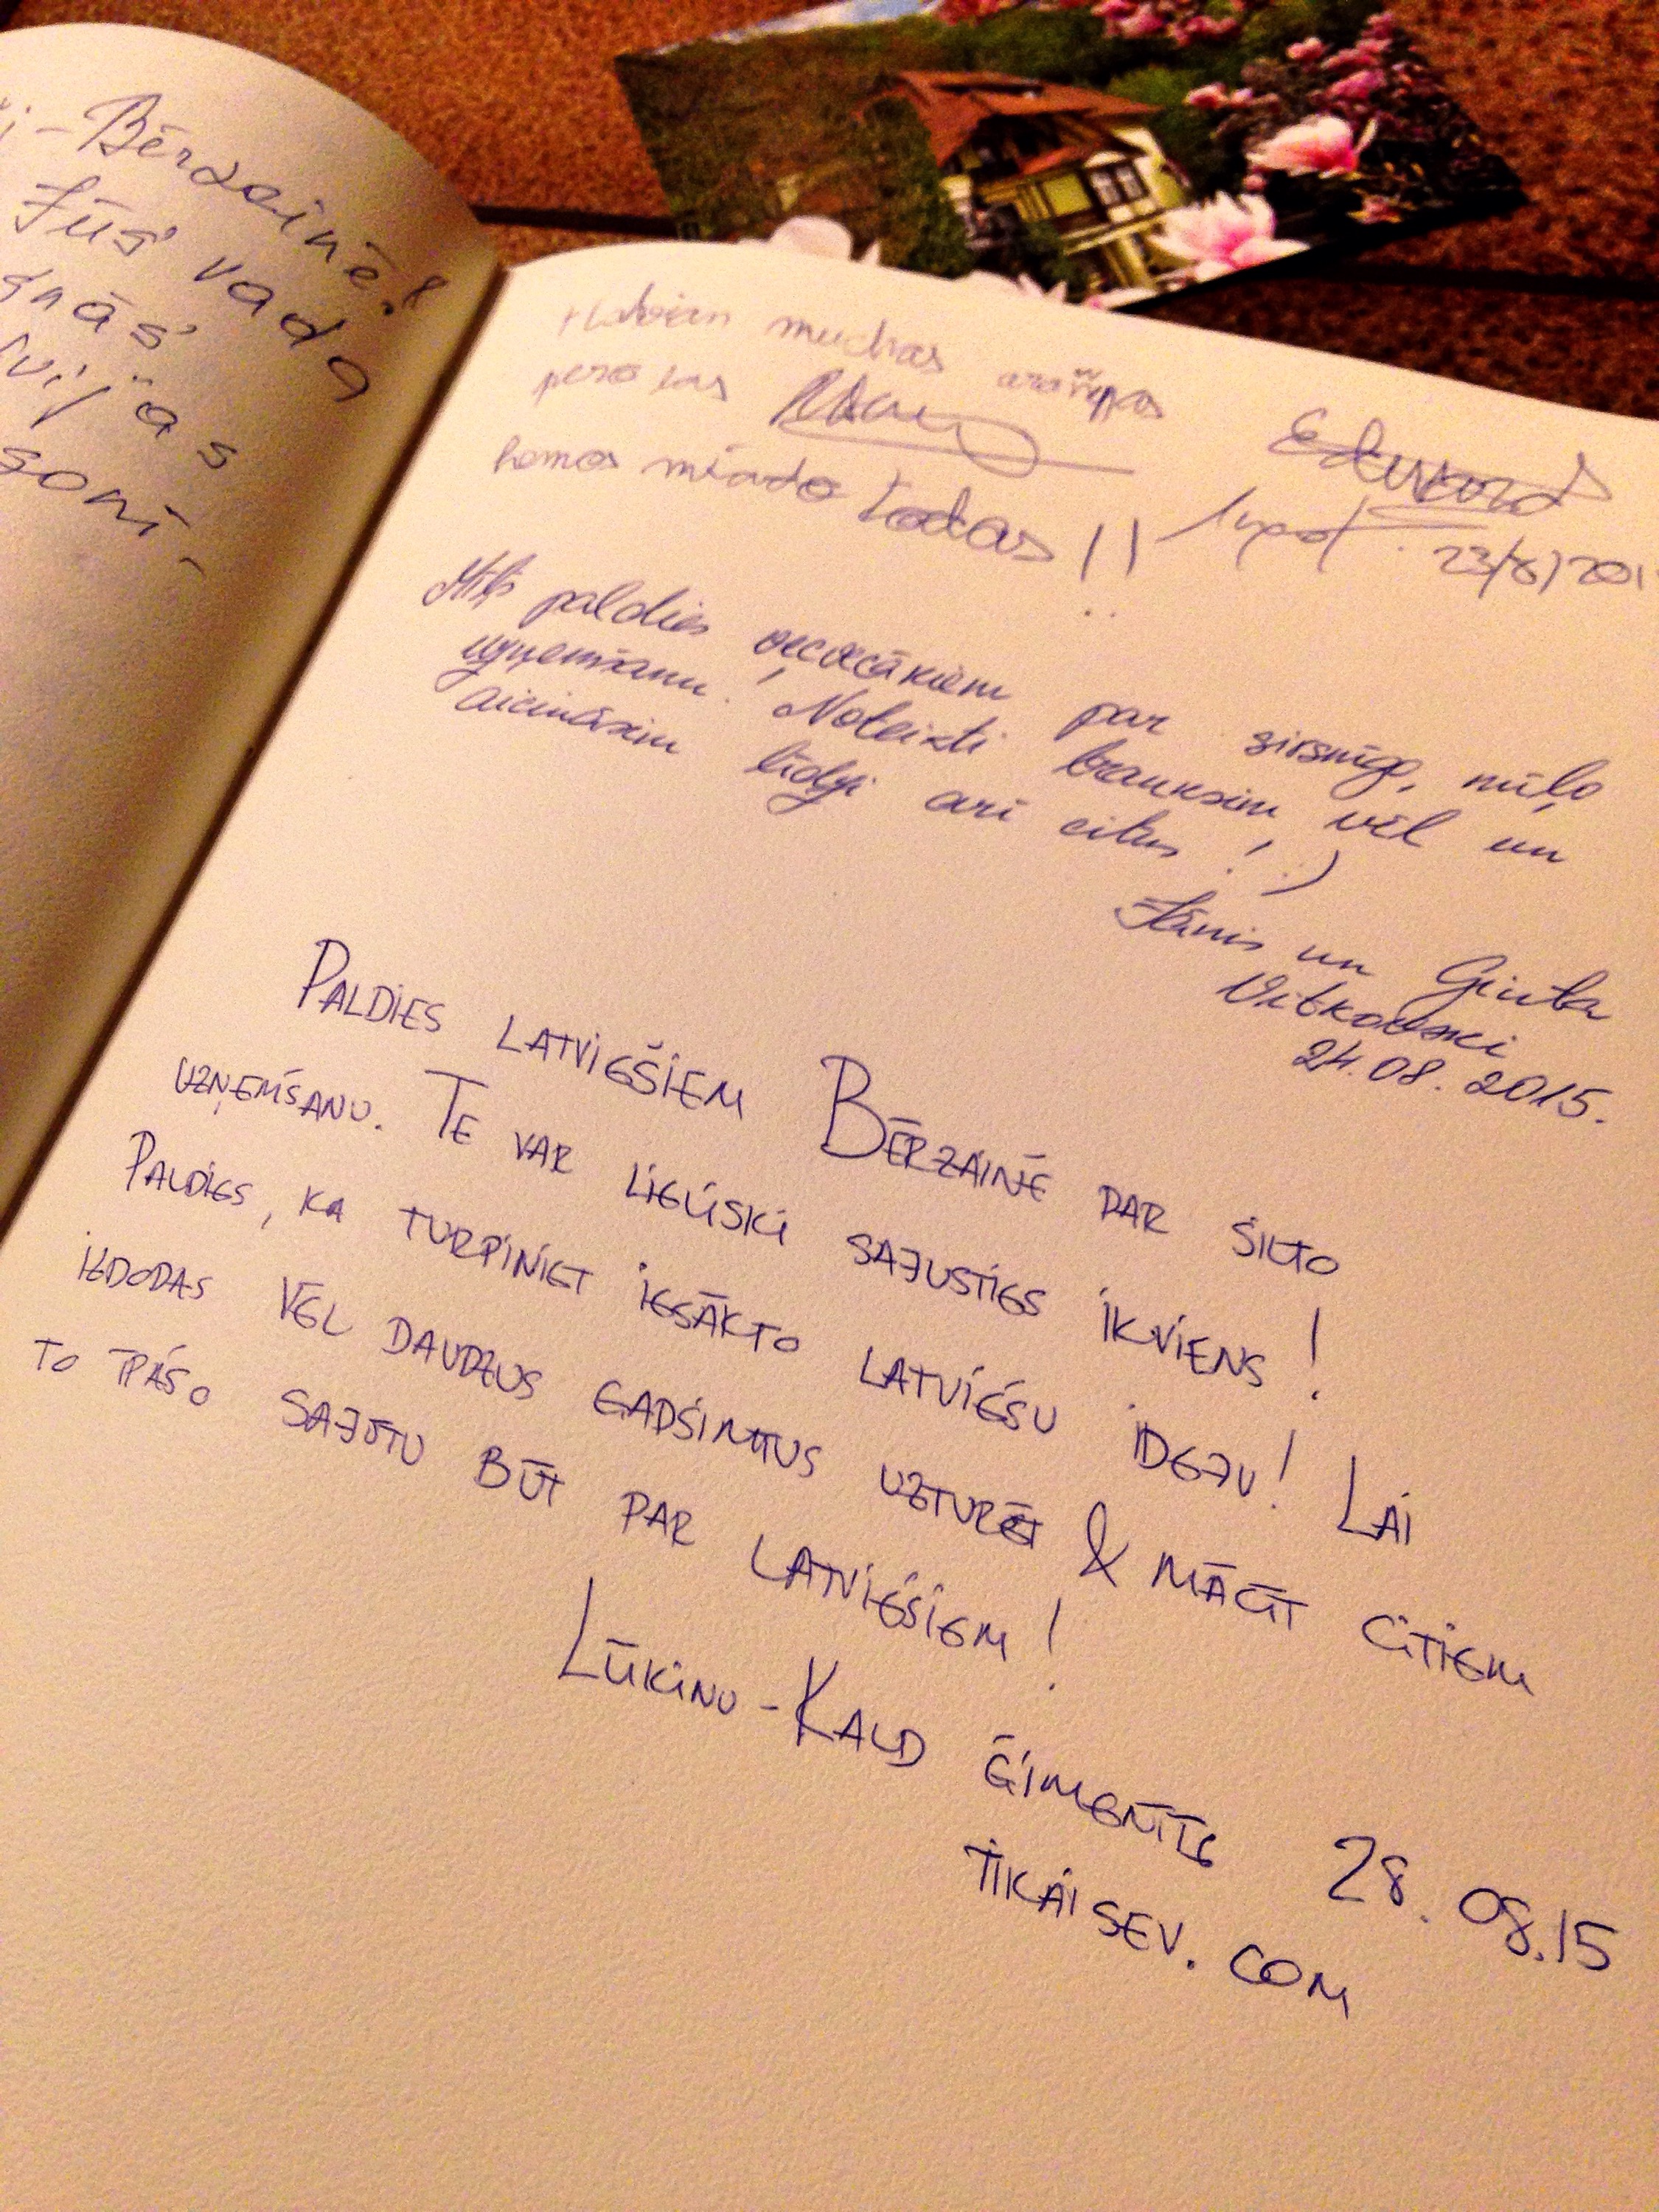 - Bērzainē!
Jūs vada
muchas
pero las
hemos todas!!
Edward
23/8/201
Mīļš paldies vecvecākiem par sirsnīgo, mīļo
uzņemšanu! Noteikti brauksim vēl un
aicināsim līdzi arī citus! :)
Jānis un Ginta
Vitkovski
24.08.2015.
PALDIES LATVIEŠIEM BĒRZAINĒ PAR SILTO
UZŅEMŠANU. TE VAR LIELISKI SAJUSTIES IKVIENS!
PALDIES, KA TURPINIET IESĀKTO LATVIEŠU IDEJU! LAI
IEDODAS VĒL DAUDZUS GADSIMTUS UZTURĒT & MĀCĪT CITIEM
TO ĪPAŠO SAJŪTU BŪT PAR LATVIEŠIEM!
LŪKINU-KALD ĢIMENĪTE 28.08.15
TIKAISEV.COM